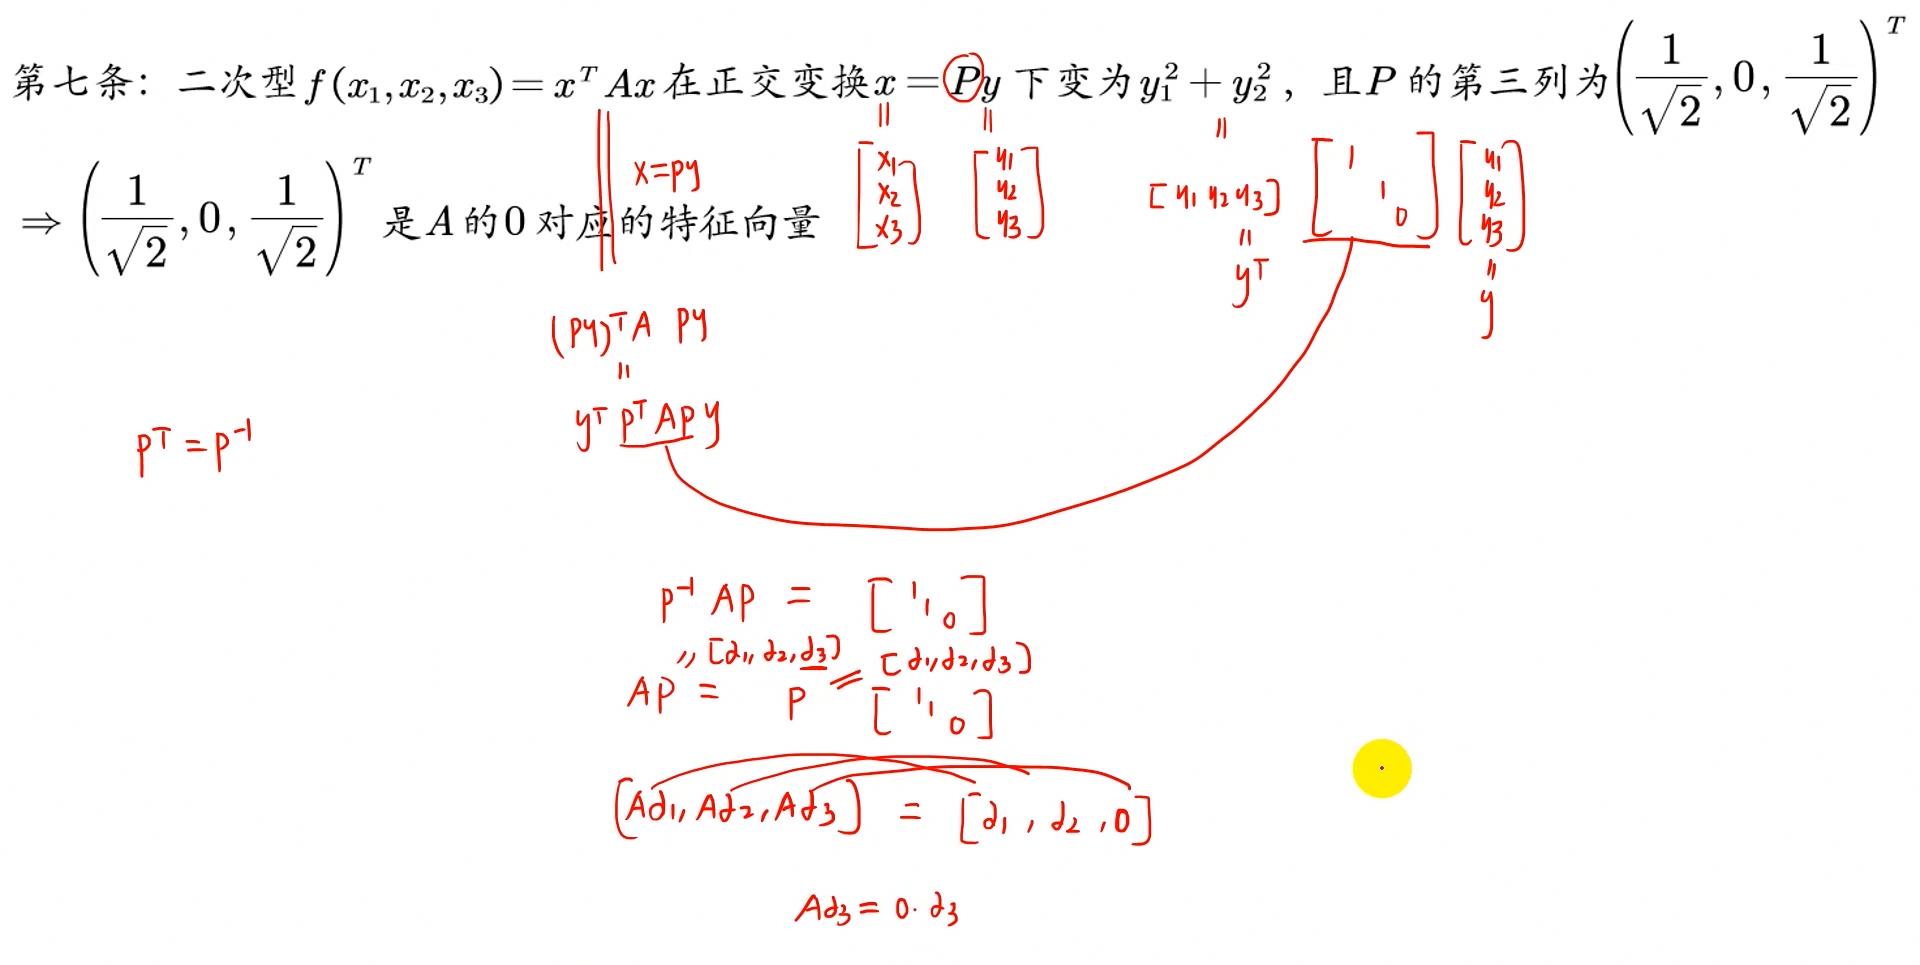 第七条：二次型 f(x₁,x₂,x₃)=xᵀAx 在正交变换 x=Py 下变为 y₁²+y₂²，且P 的第三列为(1/√2,0,1/√2)ᵀ
⇒ (1/√2,0,1/√2)ᵀ 是A的0对应的特征向量
x=py
[x₁ x₂ x₃] [y₁ y₂ y₃]
[y₁ y₂ y₃] [1 1 0] [y₁ y₂ y₃]
yᵀ y
(py)ᵀA py
=
yᵀ pᵀAp y
pᵀ=p⁻¹
p⁻¹AP = [1 1 0]
[α₁,α₂,α₃] = [α₁,α₂,α₃]
AP = P [1 1 0]
[Aα₁,Aα₂,Aα₃] = [α₁,α₂,0]
Aα₃=0·α₃